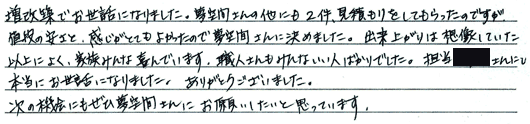 増改築でお世話になりました。夢空間さんの他にも2件、見積もりをしてもらったのですが
値段の安さと、感じがとてもよかったので夢空間さんに決めました。出来上がりは想像していた
以上によく、家族みんな喜んでいます。職人さんもみんないい人ばかりでした。担当 さんにも
本当にお世話になりました。ありがとうございました。
次の機会にもぜひ夢空間さんにお願いしたいと思っています。